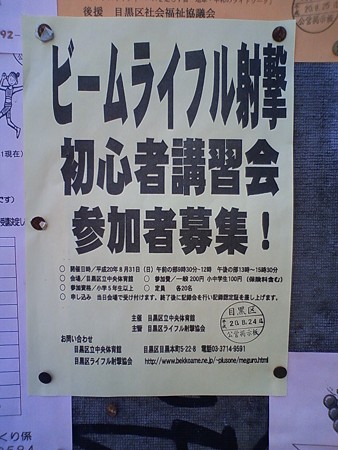 後援 目黒区社会福祉協議会
ビームライフル射撃
初心者講習会
参加者募集！
○ 開催日時／平成20年8月31日（日）午前の部9時30分~12時 午後の部13時~15時30分
○ 会場／目黒区立中央体育館 ○ 参加費／一般 200円 小中学生100円（保険料含む）
○ 参加資格／小学5年生以上 ○ 定員 各20名
○ 申し込み 当日会場で受け付けます。終了後に記録会を行い記録認定証を差し上げます。
主催 目黒区立中央体育館
主管 目黒区ライフル射撃協会
目黒区
20.8.24
公営掲示板
お問い合わせ
目黒区立中央体育館 目黒区目黒本町5-22-8 電話03-3714-9591
目黒区ライフル射撃協会 http://www.bekkoame.ne.jp/~plusone/meguro.html
くり係